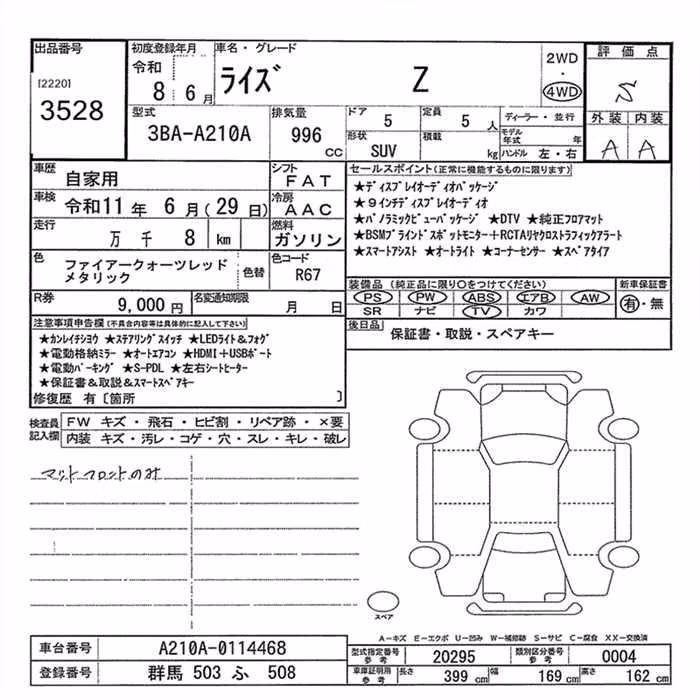 出品番号
[2220]
3528
初度登録年月
令和
8 6月
車名・グレード
ライズ Z
2WD
・
4WD
評価点
S
外装 内装
A A
型式
3BA-A210A
排気量
996
cc
ドア 5
定員 5 人
形状 SUV
積載 kg
ディーラー・並行
モデル年式 年
ハンドル 左・右
車歴 自家用
シフト FAT
車検 令和11年 6月(29日)
冷房 AAC
走行 万 千 8 km
燃料 ガソリン
色 ファイアークォーツレッド
メタリック
色替
色コード R67
R券 9,000円
名変通知期限 月 日
セールスポイント(正常に機能するものに限ります)
★ディスプレイオーディオパッケージ
★9インチディスプレイオーディオ
★パノラミックビューパッケージ ★DTV ★純正フロアマット
★BSMブラインドスポットモニター+RCTAリヤクロストラフィックアラート
★スマートアシスト ★オートライト ★コーナーセンサー ★スペアタイア
装備品(純正品に限り○をつけてください)
PS PW ABS エアB AW
SR ナビ TV カワ
新車保証書
有・無
後日品 保証書・取説・スペアキー
注意事項申告欄(不具合内容等は具体的に記入して下さい)
★カンレイチシヨウ ★ステアリングスイッチ ★LEDライト&フォグ
★電動格納ミラー ★オートエアコン ★HDMI+USBポート
★電動パーキング ★S-PDL ★左右シートヒーター
★保証書&取説&スマートスペアキー
修復歴 有〔箇所 〕
検査員
記入欄
FW キズ・飛石・ヒビ割・リペア跡・×要
内装 キズ・汚レ・コゲ・穴・スレ・キレ・破レ
マットフロントのみ
スペア
A-キズ E-エクボ U-凹み W-補修跡 S-サビ C-腐食 XX-交換済
車台番号 A210A-0114468
登録番号 群馬 503 ふ 508
型式指定番号
参考
20295
類別区分番号
参考
0004
車庫証明用
参考
長さ 399 cm 幅 169 cm 高さ 162 cm